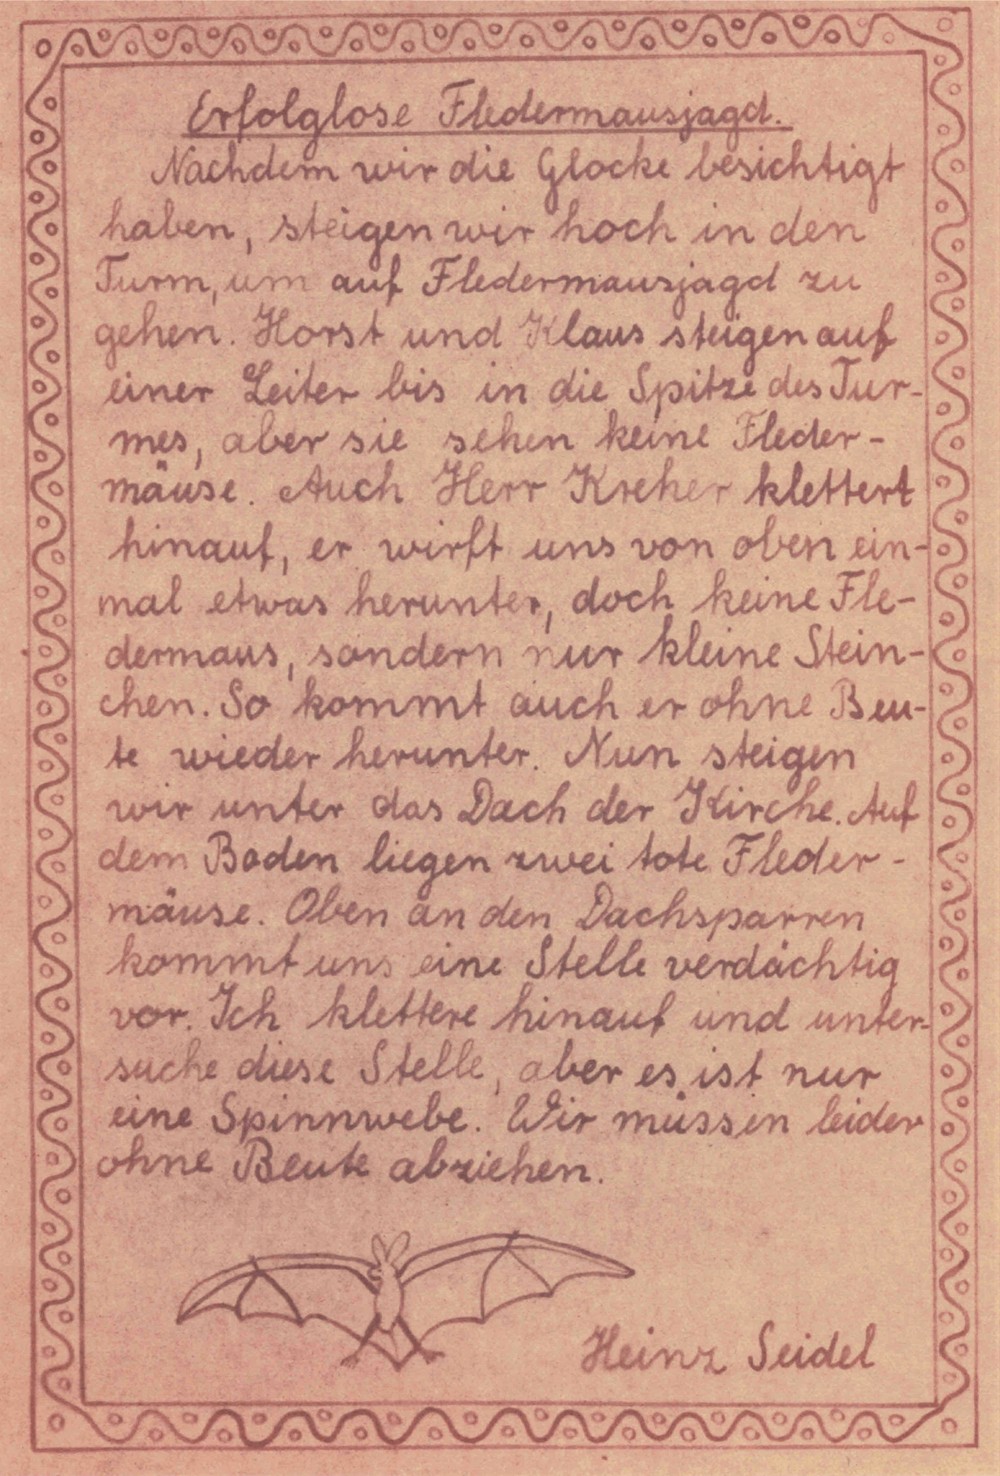 Erfolglose Fledermausjagd.
Nachdem wir die Glocke besichtigt
haben, steigen wir hoch in den
Turm, um auf Fledermausjagd zu
gehen. Horst und Klaus steigen auf
einer Leiter bis in die Spitze des Tur-
mes, aber sie sehen keine Fleder-
mäuse. Auch Herr Kreher klettert
hinauf, er wirft uns von oben ein-
mal etwas herunter, doch keine Fle-
dermaus, sondern nur kleine Stein-
chen. So kommt auch er ohne Beu-
te wieder herunter. Nun steigen
wir unter das Dach der Kirche. Auf
dem Boden liegen zwei tote Fleder-
mäuse. Oben an den Dachsparren
kommt uns eine Stelle verdächtig
vor. Ich klettere hinauf und unter-
suche diese Stelle, aber es ist nur
eine Spinnwebe. Wir müssen leider
ohne Beute abziehen.
Heinz Seidel